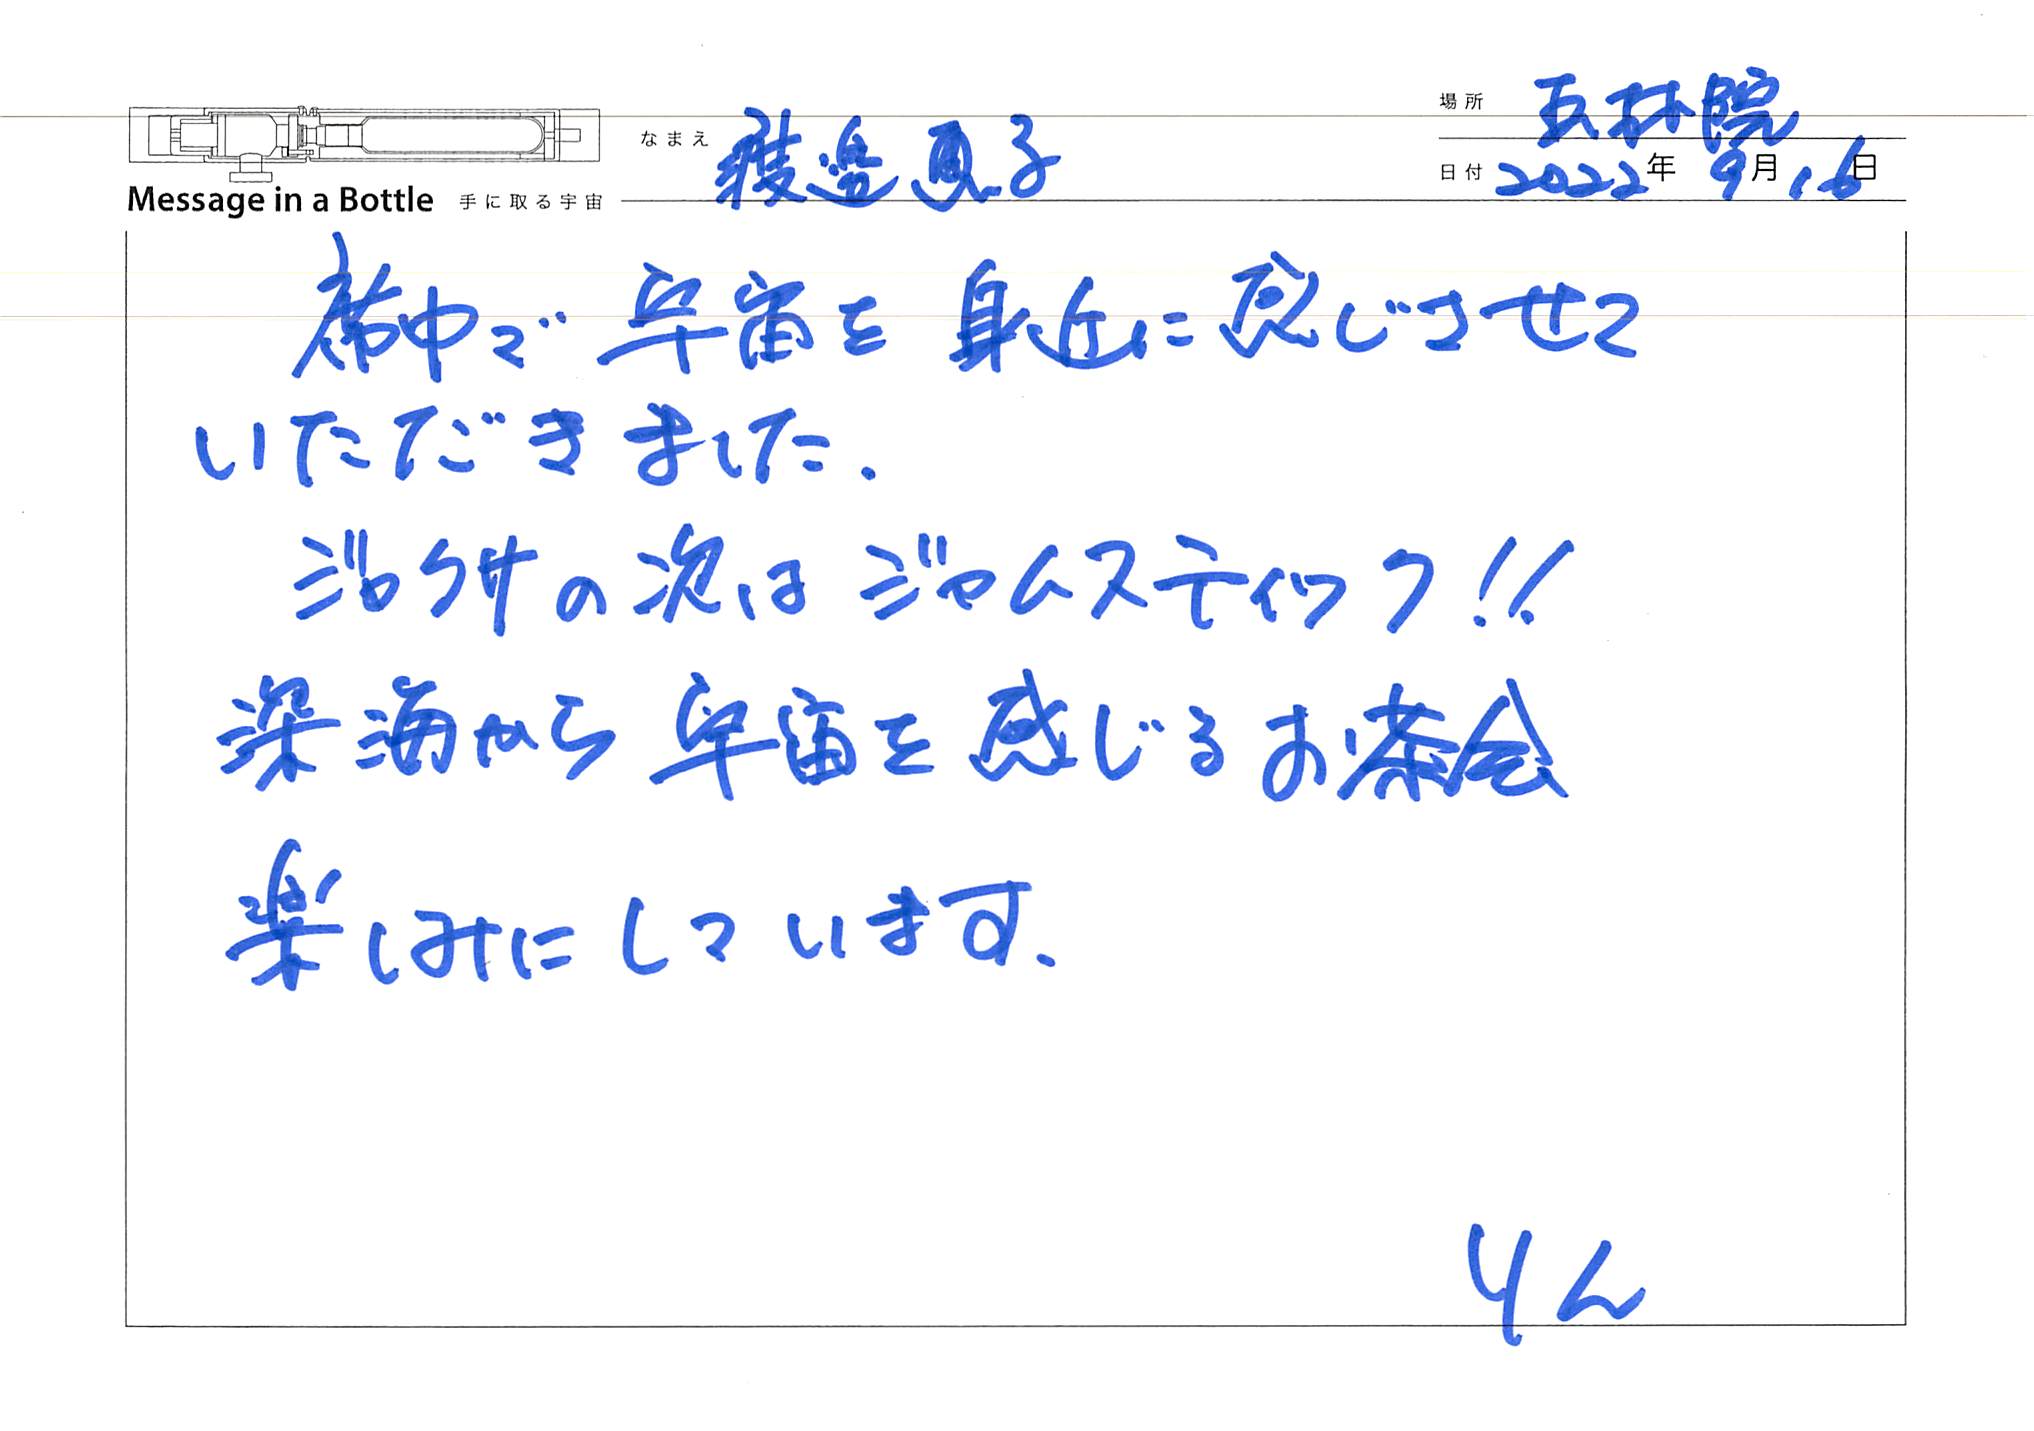 場所 玉林院
なまえ 渡邉真子
日付 2022年 9月 16日
Message in a Bottle 手に取る宇宙
席中で 宇宙を 身近に 感じさせて
いただきました.
ジャクサの次は ジャムスティック!!
深海から 宇宙を 感じる お茶会
楽しみに しています.
りん